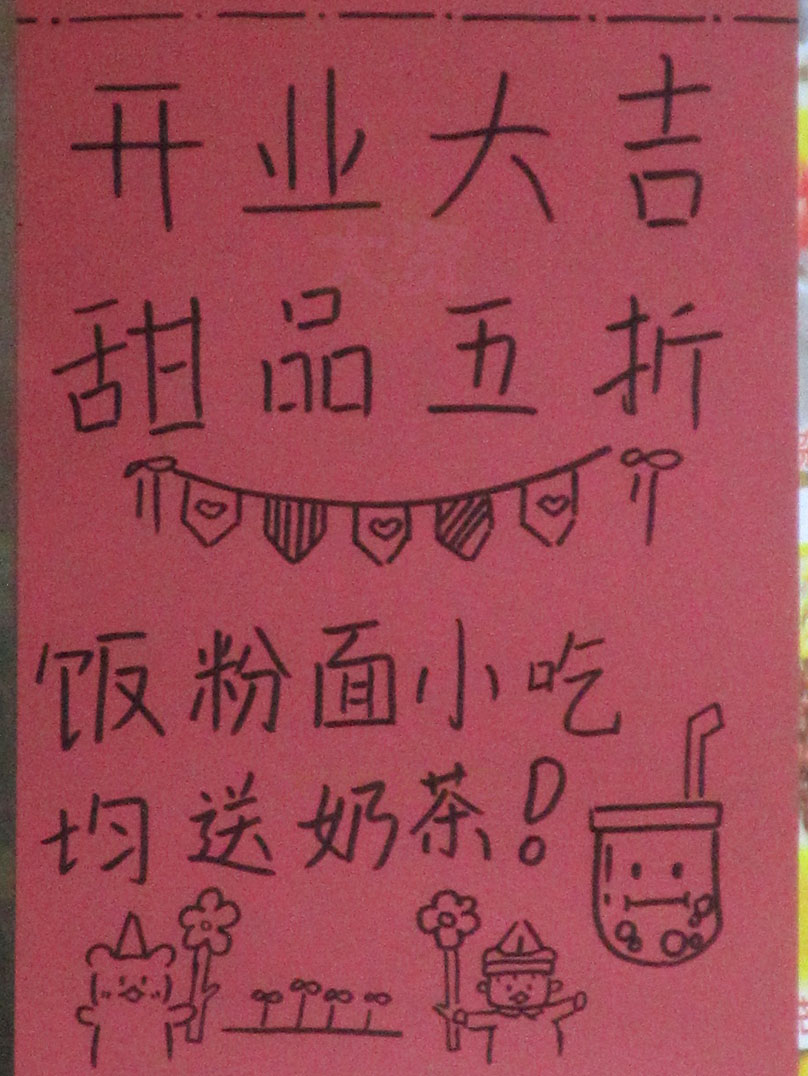 开业大吉
甜品五折
饭粉面小吃
均送奶茶!